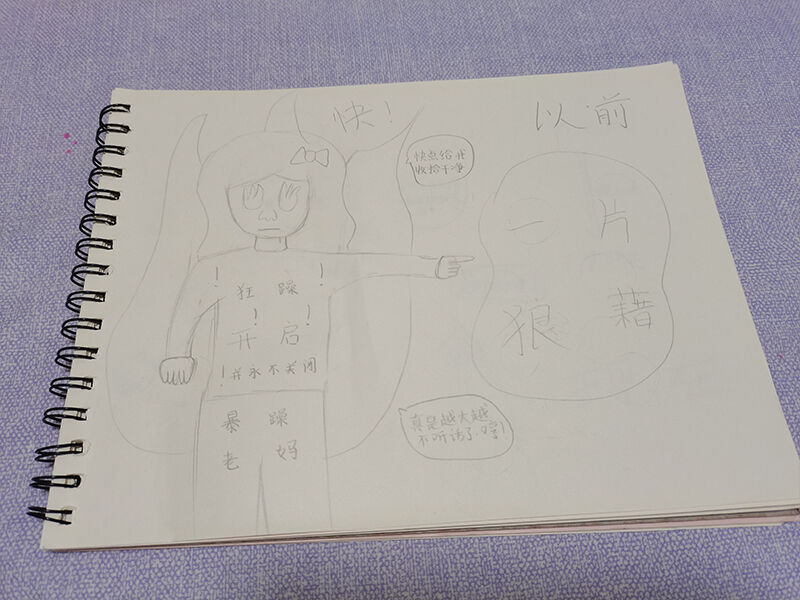 快！
以前
快点给我
收拾干净
一片
狼藉
！狂躁！
！开启！
！并永不关闭
暴躁
老妈
真是越大越
不听话了，哼！